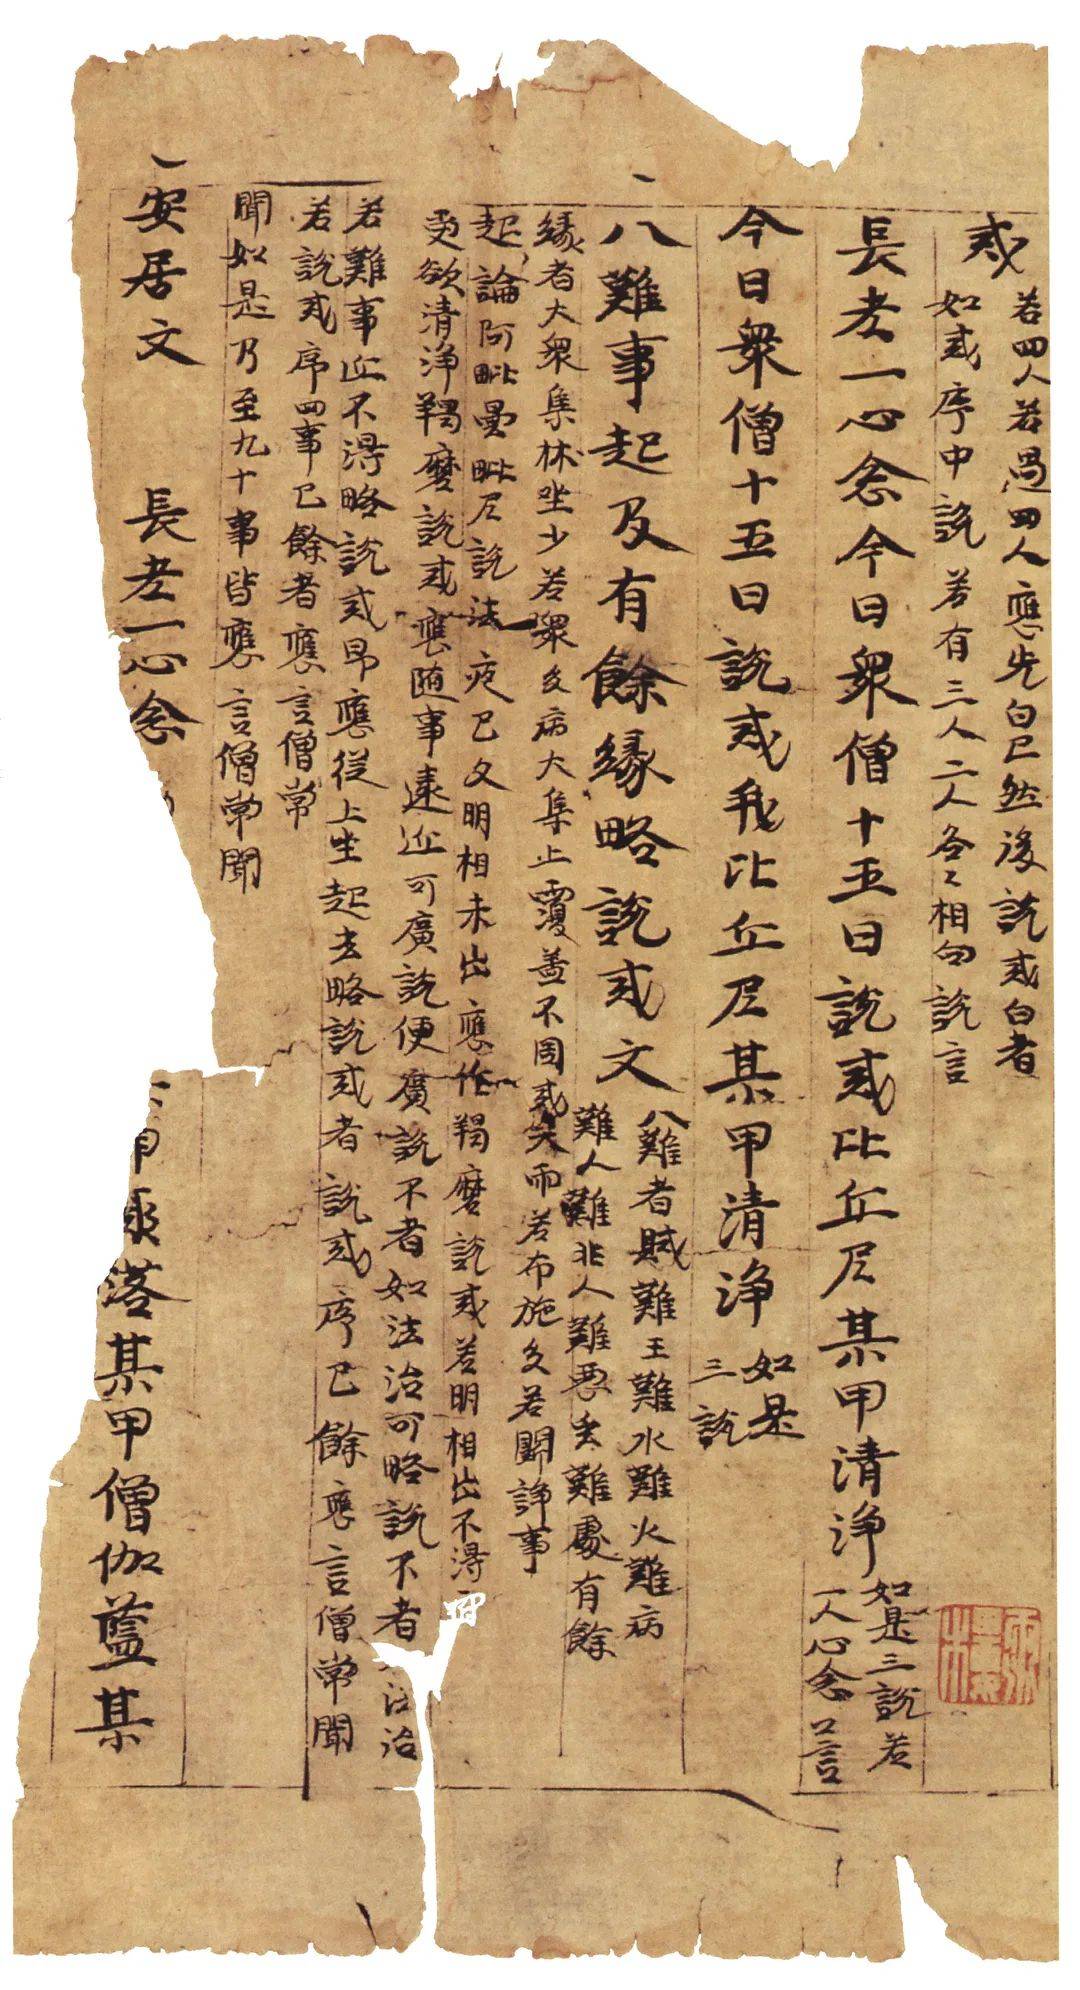 戒
若四人若過四人應先白已然後說戒白者
如戒序中說若有三人二人各々相向說言
長老一心念今日衆僧十五日說戒比丘尼某甲清淨
如是三說若
一人心念口言
今日衆僧十五日說戒我比丘尼某甲清淨
如是
三說
八難事起及有餘緣略說戒文
八難者賊難王難水難火難病
難人難非人難惡虫難處有餘
緣者大衆集床坐少若衆多病大集上覆蓋不周或天雨若布施多若鬪諍事
起論阿毗曇毗尼說法夜已久明相未出應作羯磨說戒若明相出不得
更欲清淨羯磨說戒應隨事遠近可廣說便廣說不者如法治可略說不者
法治
若難事近不得略說戒即應從上坐起去略說戒者說戒序已餘應言僧常聞
若說戒序四事已餘者應言僧常
聞如是乃至九十事皆應言僧常聞
安居文 長老一心念
落某甲僧伽藍某